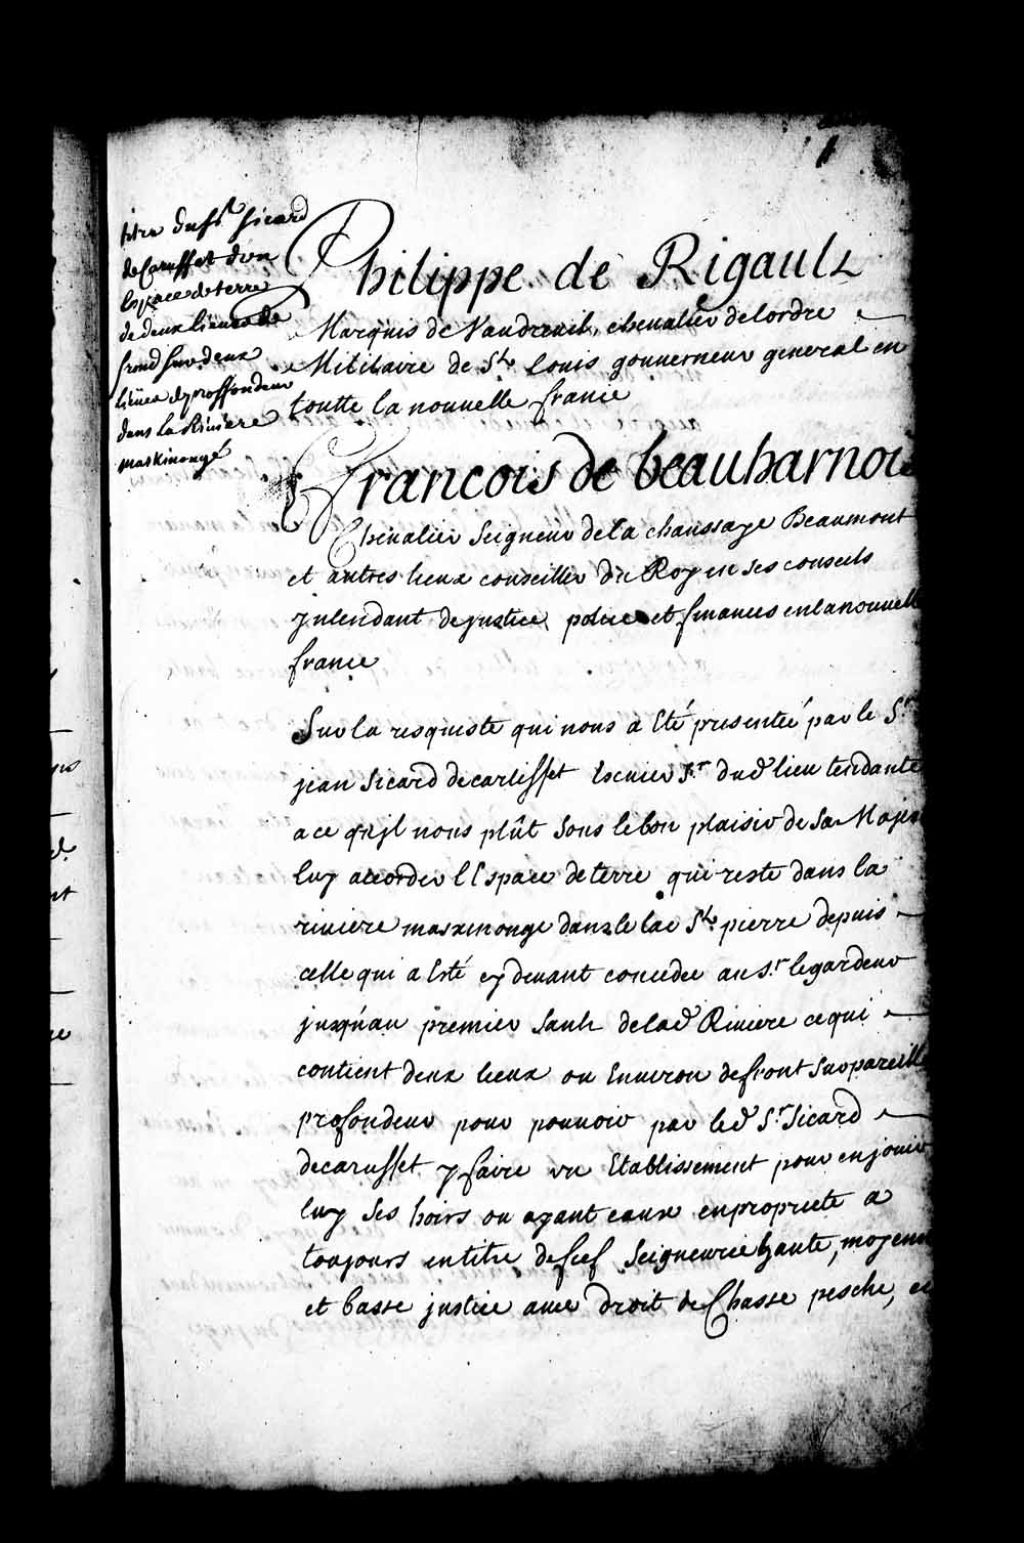 1
titre du Sr. Sicard
de Carufset d'un
Espace de terre
de deux Lieues de
frond sur deux
Lieues de proffondeur
dans La Riviere
maskinongé
Philippe de Rigault
Marquis de Vaudreuil, chevalier de lordre
Militaire de St. Louis gouuerneur general en
toutte la nouuelle france
Francois de beauharnois
Cheualier Seigneur de la chaussaye Beaumont
et autres lieux conseiller du Roy en ses conseils
yntendant de justice, police et finances en la nouuelle
france
Sur la resqueste qui nous a Eté presenteé par le Sr.
jean Sicard de carufsset Escuier Sr. dud. lieu tendante
a ce qu'jl nous plût sous le bon plaisir de Sa Majesté
luy accorder l'Espace de terre qui reste dans la
riuiere masxinonge dans le lac St. pierre depuis
celle qui a Esté cy deuant concedee au Sr. legardeur
jusqu'au premier Sault de lad. Riuiere ce qui
contient deux lieux ou Enuiron de front sur pareille
profondeur pour pouuoir par led. Sr. Sicard
de carufsset y faire un Etablissement pour en jouir
luy ses hoirs ou ayant caux en propriete a
toujours en titre de fief Seigneurie haute, moyenne
et basse justice auec droit de Chasse pesche, et